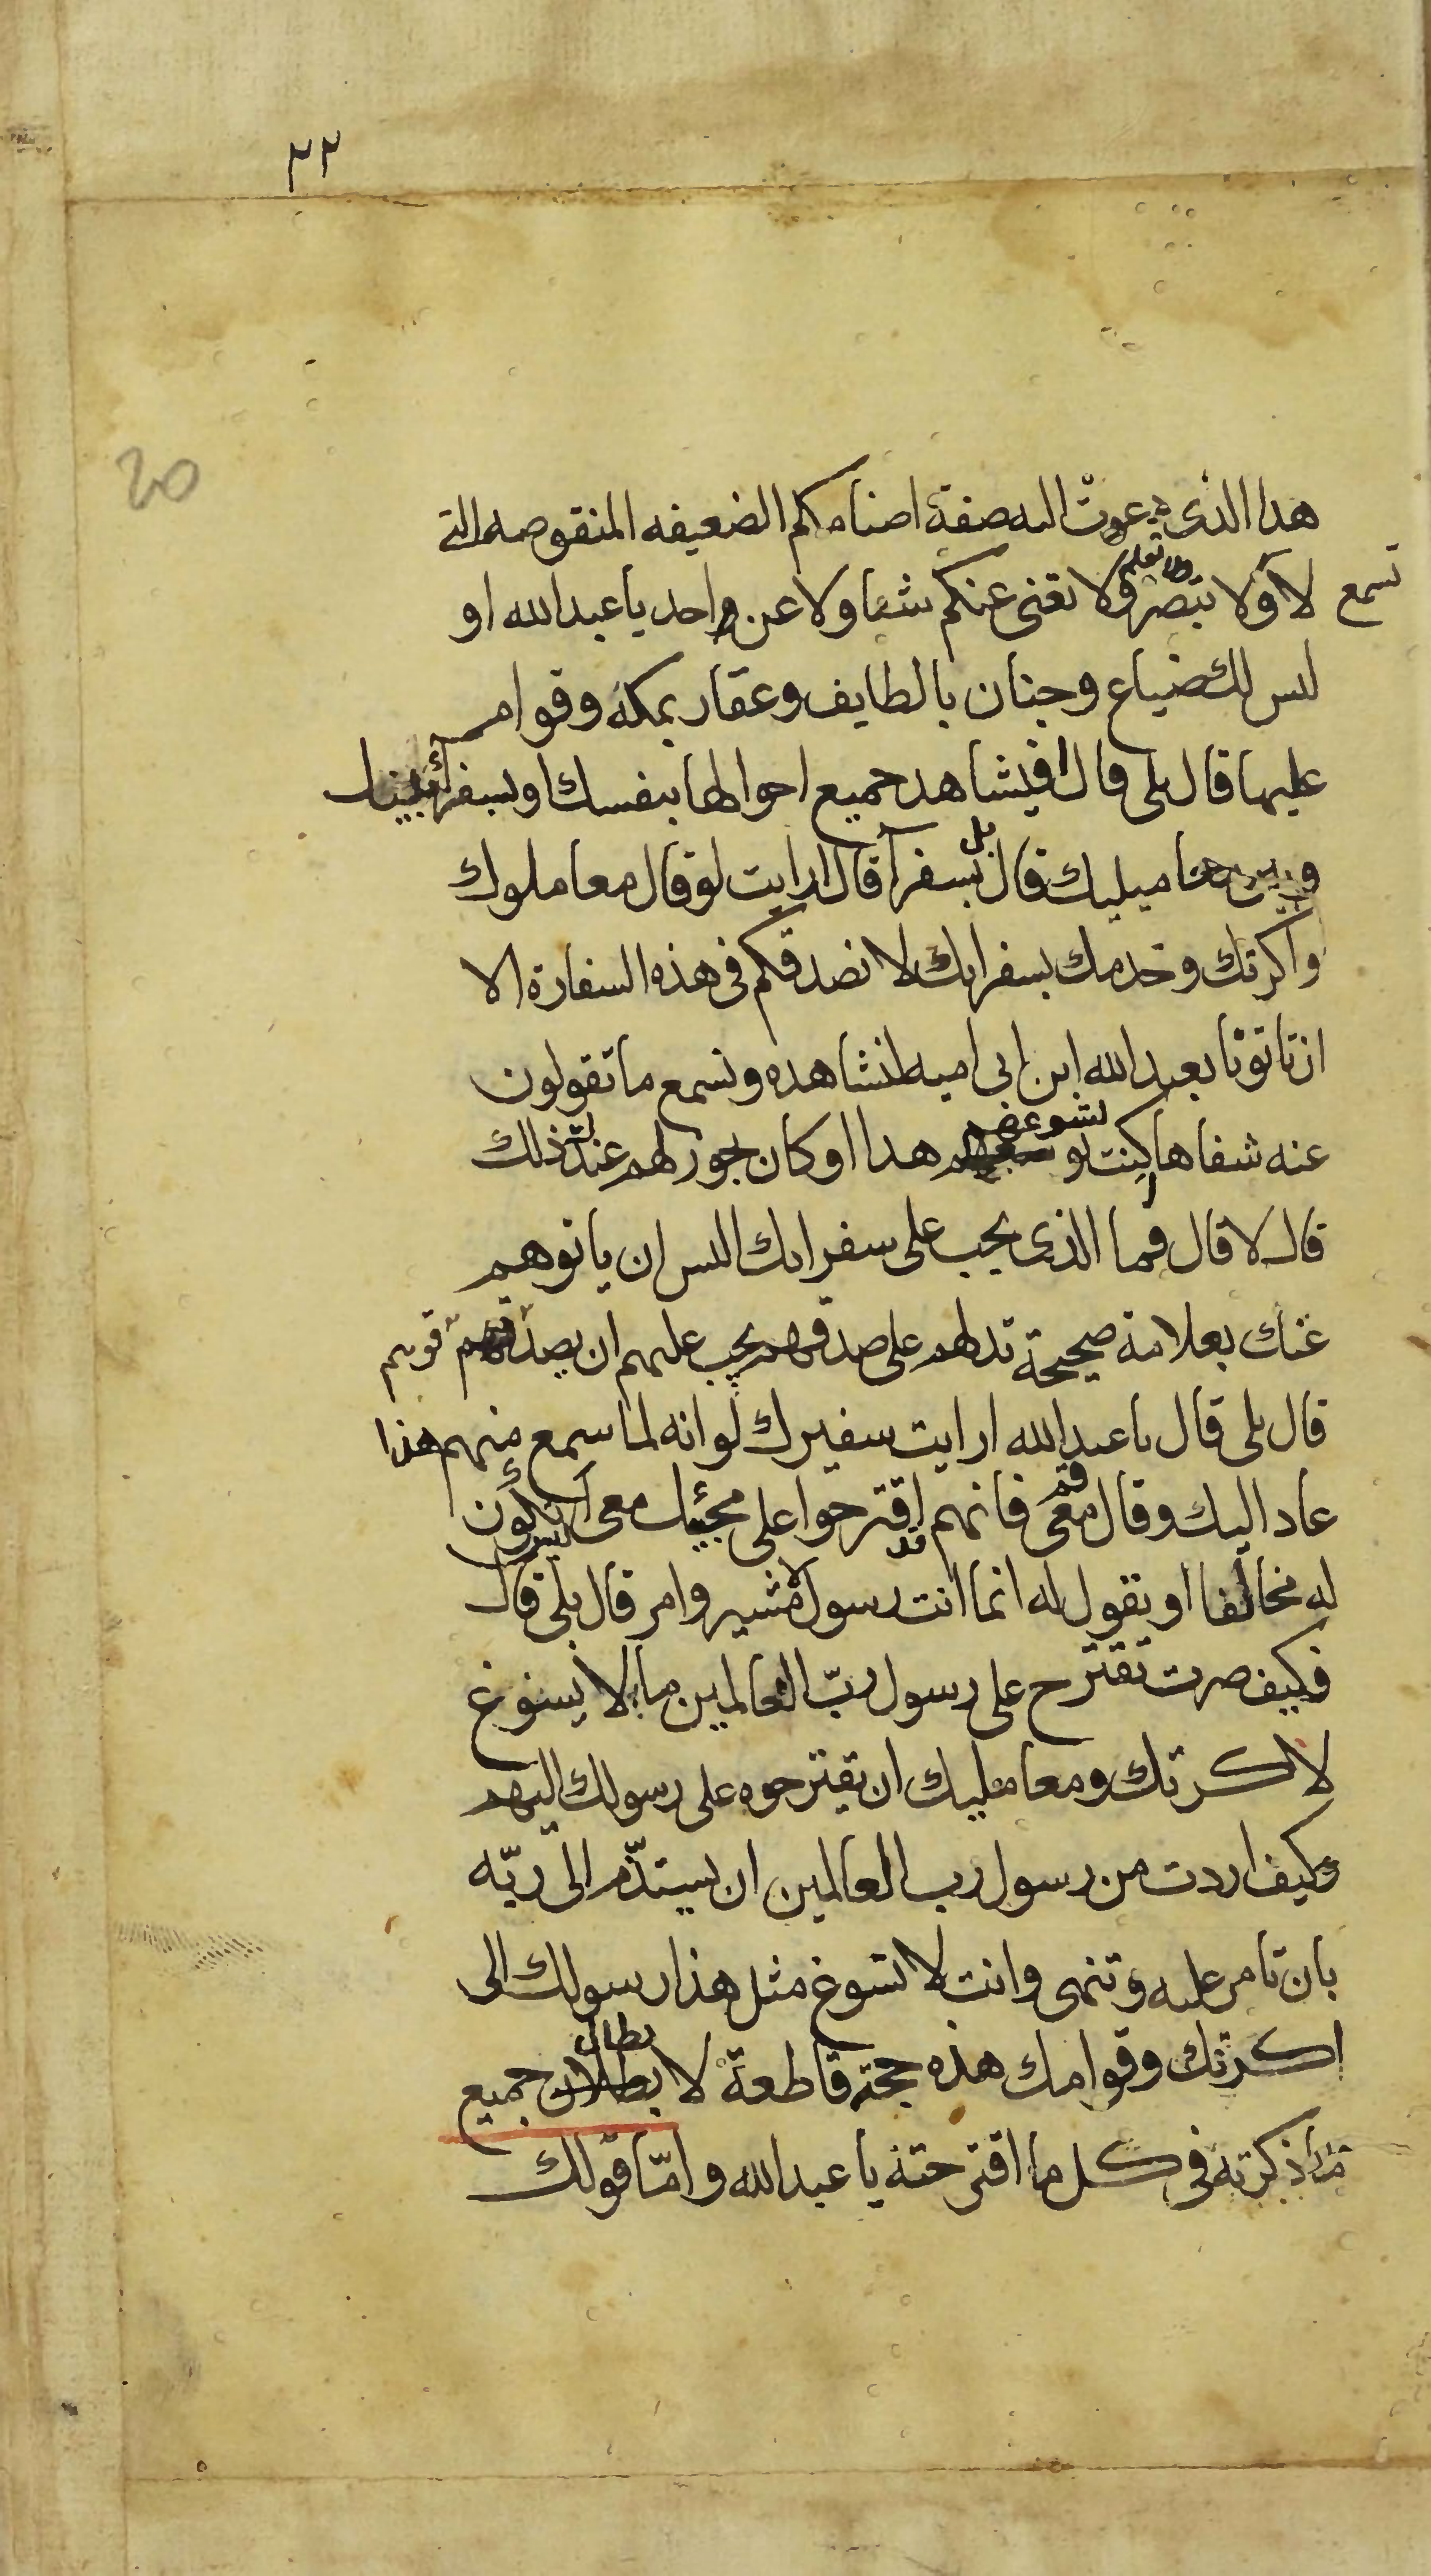 ٢٢
20
هذا الذى دعوت اليه صفة اصنامكم الضعيفه المنقوصه التى
لا تسمع ولا تبصر ولا تعلم ولا تغنى عنكم شيئا ولا عن واحد يا عبدالله او
ليس لك ضياع وجنان بالطايف وعقار بمكة وقوام
عليها قال بلى قال افيشاهد جميع احوالها بنفسك او بسفراء بينك
وبين معامليك قال بل بسفرآ قال ارايت لو قال معاملوك
واكرتك وخدمك بسفرايك لا نصدقكم فى هذه السفارة الا
ان تاتونا بعبدالله ابن ابى اميه لنشاهده ونسمع ما تقولون
عنه شفاها كنت لتسوغهم هذا او كان يجوز لهم عندك ذلك
قال لا قال فما الذى يجب على سفرايك اليس ان ياتوهم
عنك بعلامة صحيحة تدلهم على صدقهم يجب عليهم ان يصدقوهم
قال بلى قال يا عبدالله ارايت سفيرك لو انه لما سمع منهم هذا
عاد اليك وقال قم معى فانهم قد اقترحوا على مجيئك معى اليس يكون
له مخالفا او تقول له انما انت رسول لا مشير وامر قال بلى قال
فكيف صرت تقترح على رسول ربّ العالمين ما لا يسوغ
لاكرتك ومعامليك ان يقترحوه على رسولك اليهم
وكيف اردت من رسول رب العالمين ان يستذّم الى ربّه
بان تامر عليه وتنهى وانت لا تسوغ مثل هذا رسولك الى
اكرتك وقوامك هذه حجة قاطعة لابطال جميع
ما ذكرته فى كل ما اقترحته يا عبدالله وامّا قولك